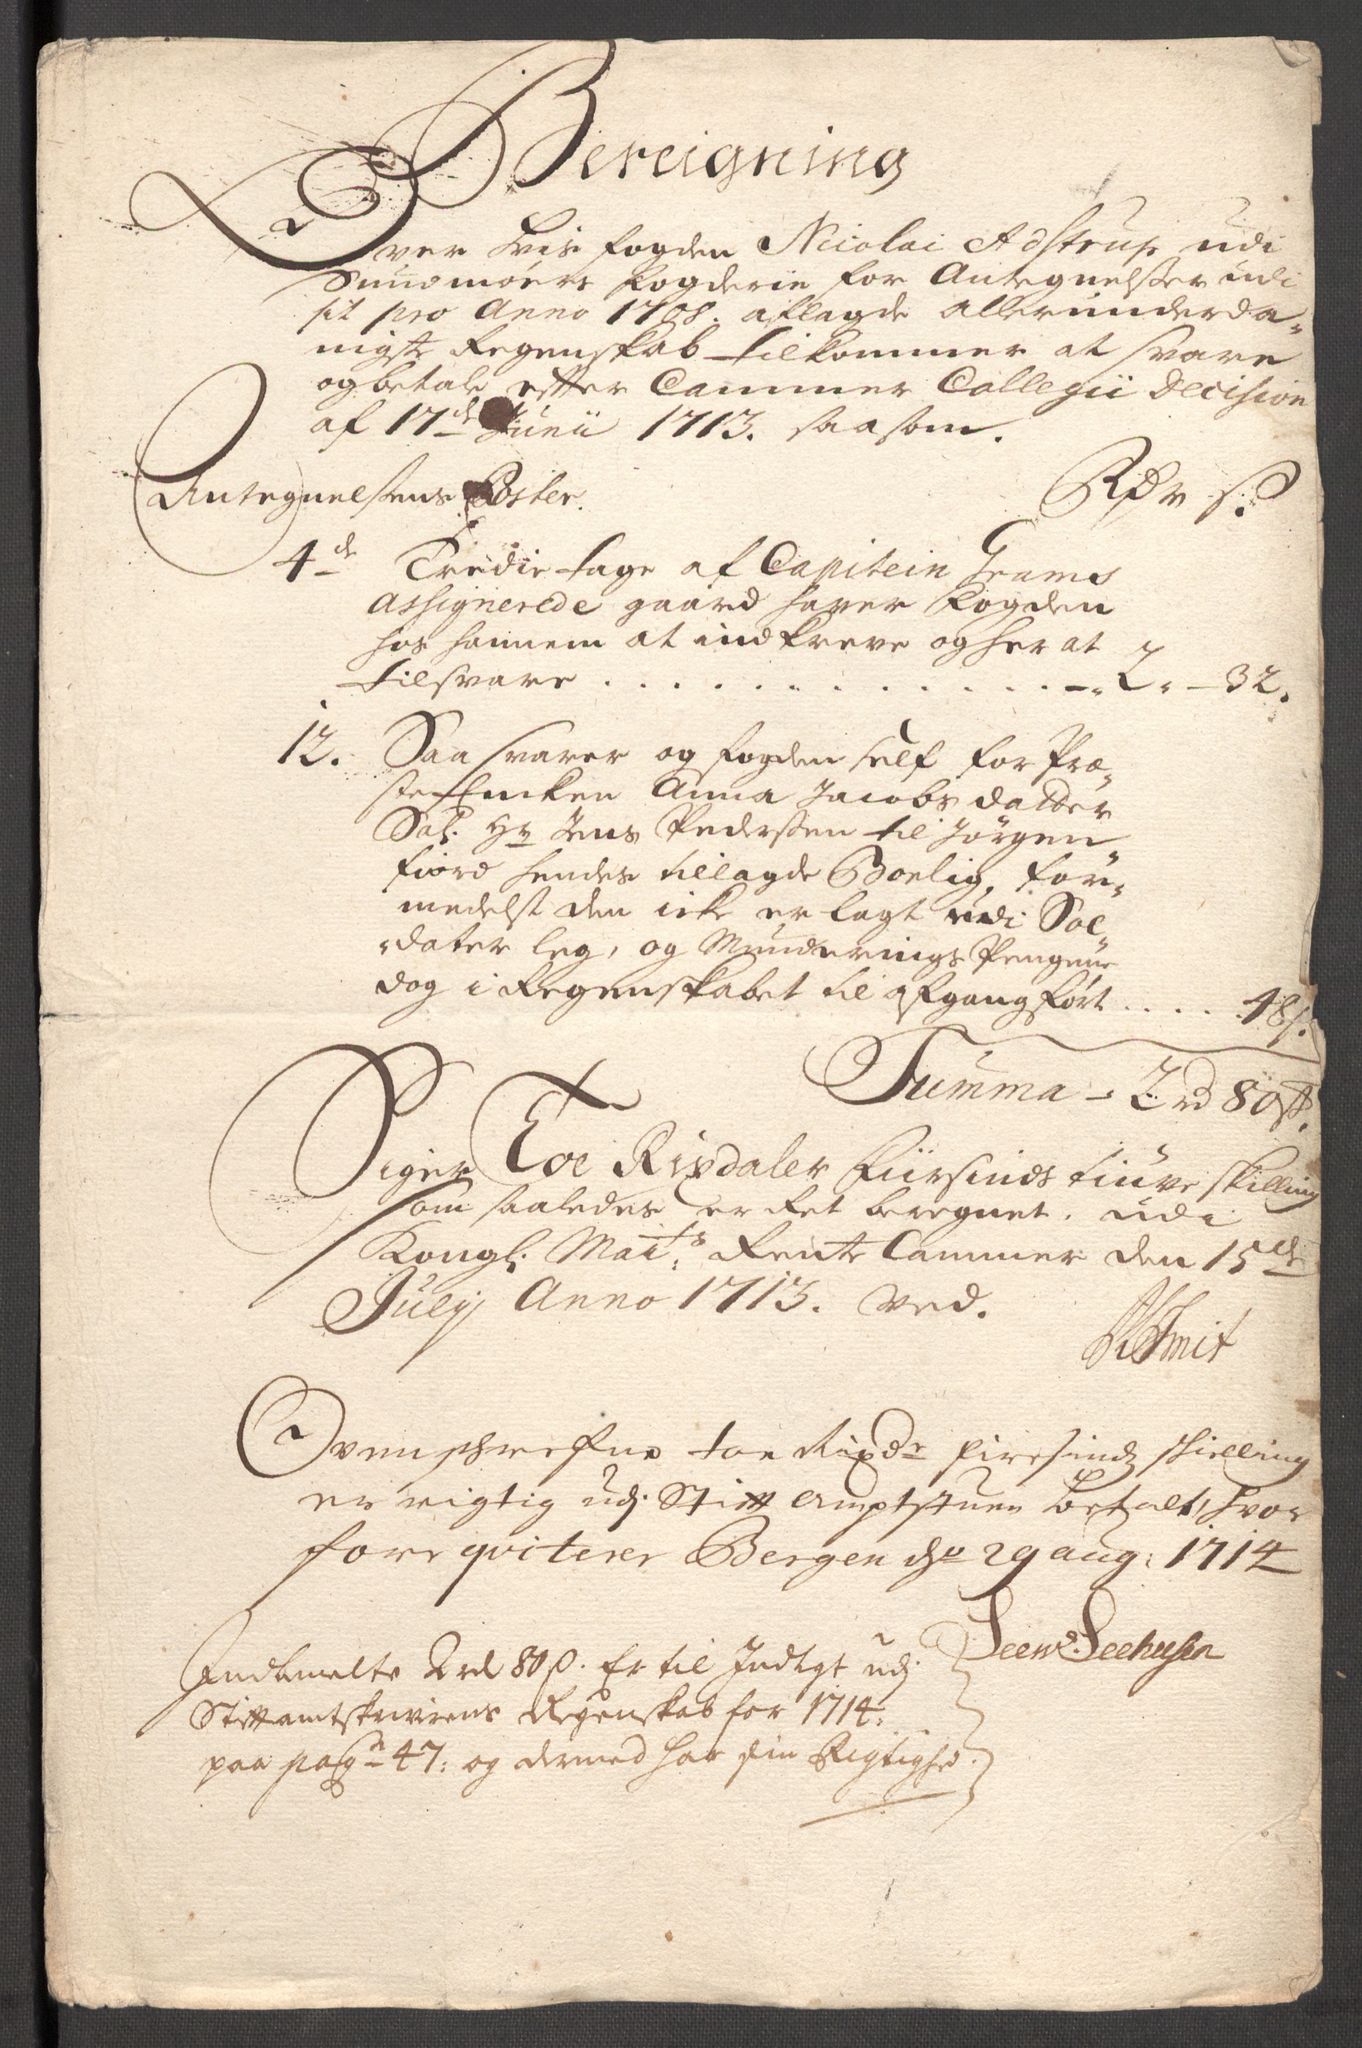 Bereigning
Over hvis fogden Nicolai Astrup udi
Sundmøers fogderie for Antegnelser udi
sit pro Anno 1708. aflagde allerunderda-
nigste Regenskab tilkommer at svare
og betale efter Cammer Collegii Decision
af 17de Junii 1713. saasom.
Antegnelsens Poster. Rdr s.
4de Tredie tage af Capitein Grams
Assignerede gaard haver fogden
hos hannem at indkreve og her at
tilsvare . . . . . . . . . . . . . . 2 - 32.
12. Saa svarer og fogden self for Præ-
ste Encken Anna Jacobs datter
Sal. Hr Jens Pedersen til Jørgen-
fiord hendes tillagde Boelig, for-
medelst den icke er lagt udi Sol-
dater leg, og Munderings Pengene
dog i Regenskabet til afgang ført . . . . 48 s.
Summa - 2 rd 80 s.
Siger Toe Rixdaler Fiirsinds tiuve skilling
som saaledes er ret beregnet. udi
Kongl. Maits. Rente Cammer den 15de
July Anno 1713. ved.
Smit
Ovenschrefne toe Rixdr firesinds schilling
er rigtig udj Stift Amptstuen betalt, hvor
fore qviterer Bergen dn 29 aug: 1714
Seehusen
Indbemelte 2 rd 80 s. Er til Indtegt udj
Stiftamtskrivrens Regenskab for 1714.
paa pagn 47: og dermed har sin Rigtighd.